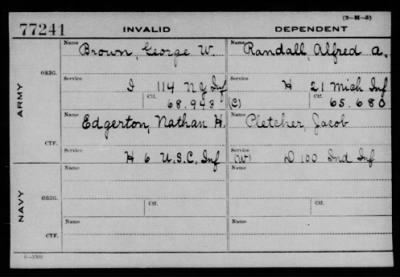 (3-M-3)
77241 INVALID DEPENDENT
Name Brown, George W. Name Randall, Alfred A.
ORIG. Service I 114 N Y Inf Service H 21 Mich Inf
Ctf. 68.943 (C) Ctf. 65.680
ARMY
Name Edgerton, Nathan H. Name Pletcher, Jacob
CTF. Service H 6 U.S.C. Inf Service (W) D 100 Ind Inf
Name Name
ORIG. Ctf. Ctf.
NAVY
Name Name
CTF.